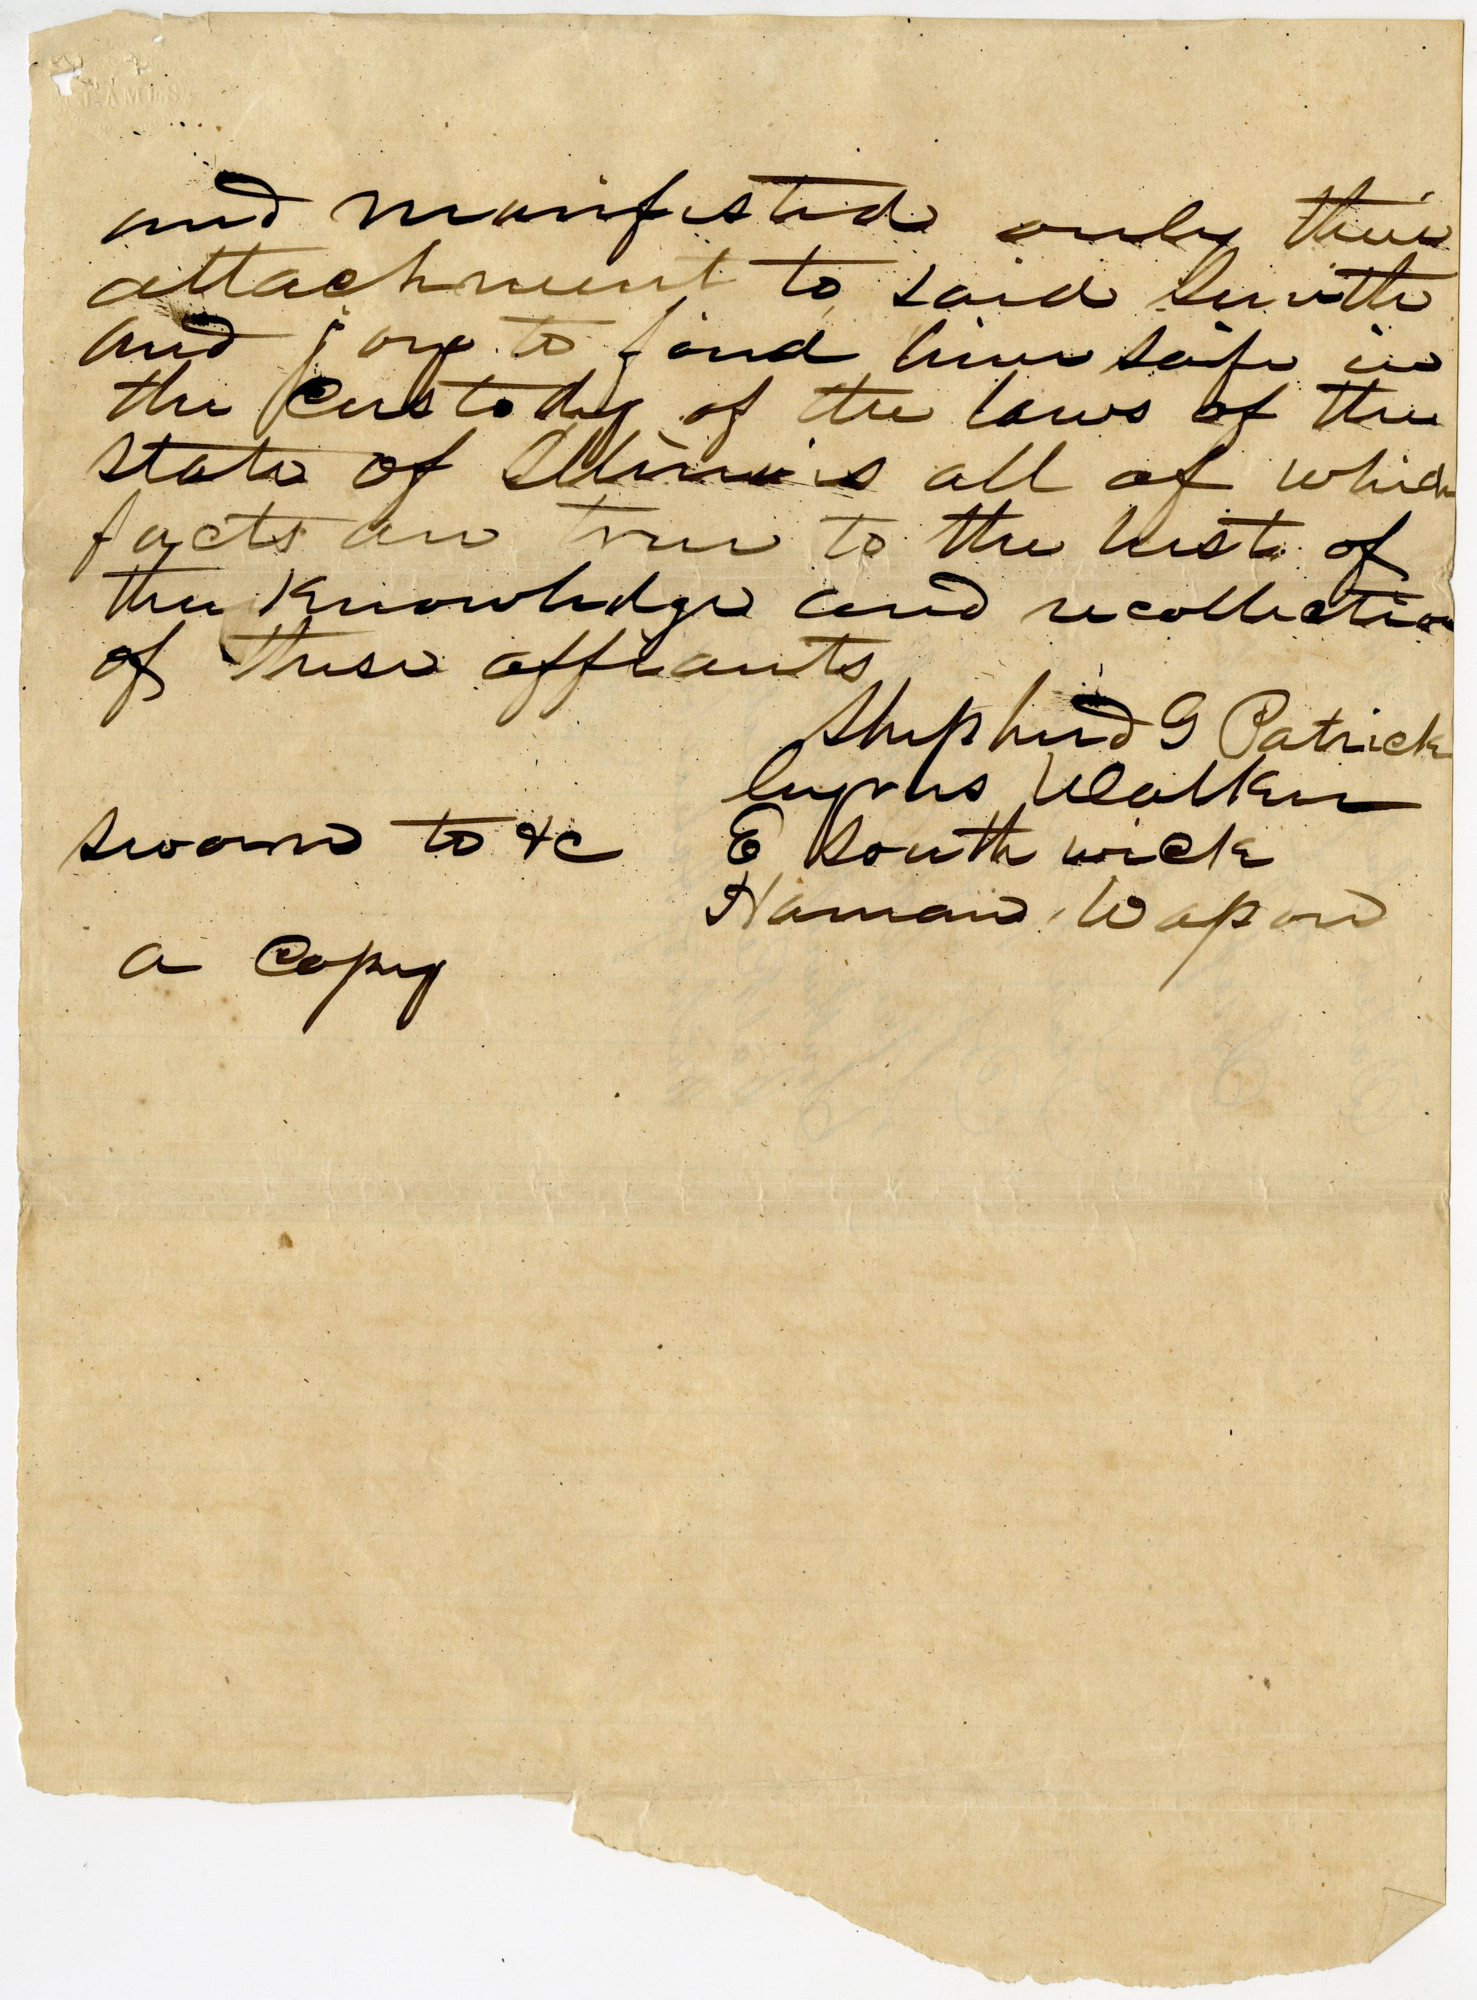 L. AMES
and manifested only their
attachment to said Smith
and joy to find him safe in
the Custody of the laws of the
State of Illinois all of which
facts are true to the best of
the Knowledge and recollection
of these affiants
Shepherd G Patrick
Cyrus Walker
sworn to &c E Southwick
Haman Wapon
a Copy